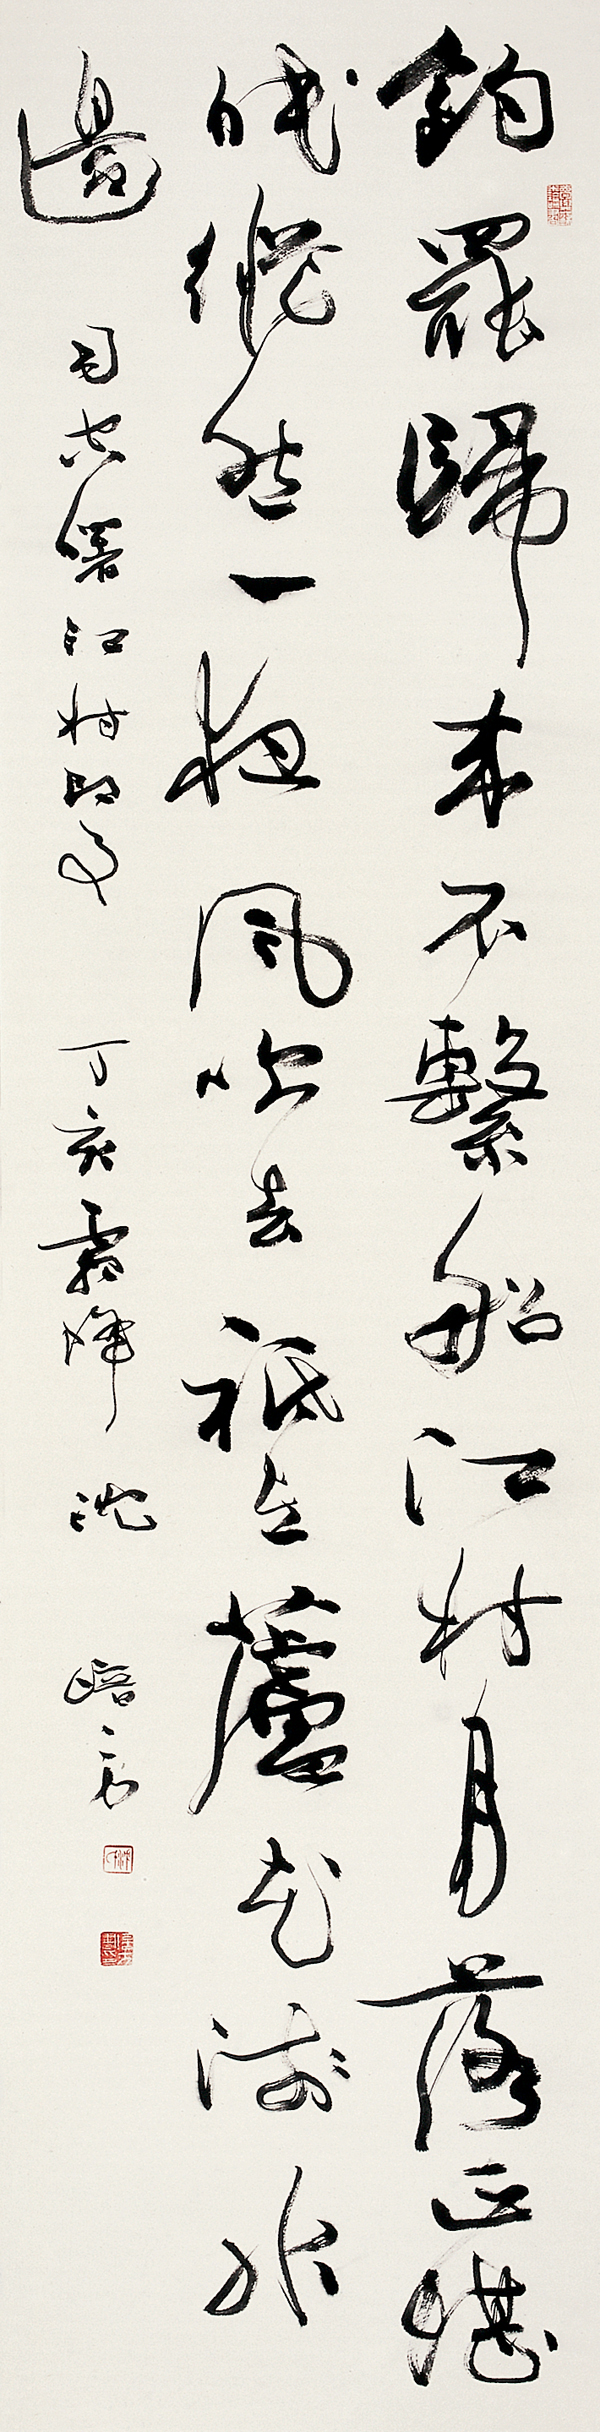 釣罷歸來不繫船江村月落正堪
眠縱然一夜風吹去祗在蘆花淺水
邊 司空署江村即事 丁亥霜降 沈培方